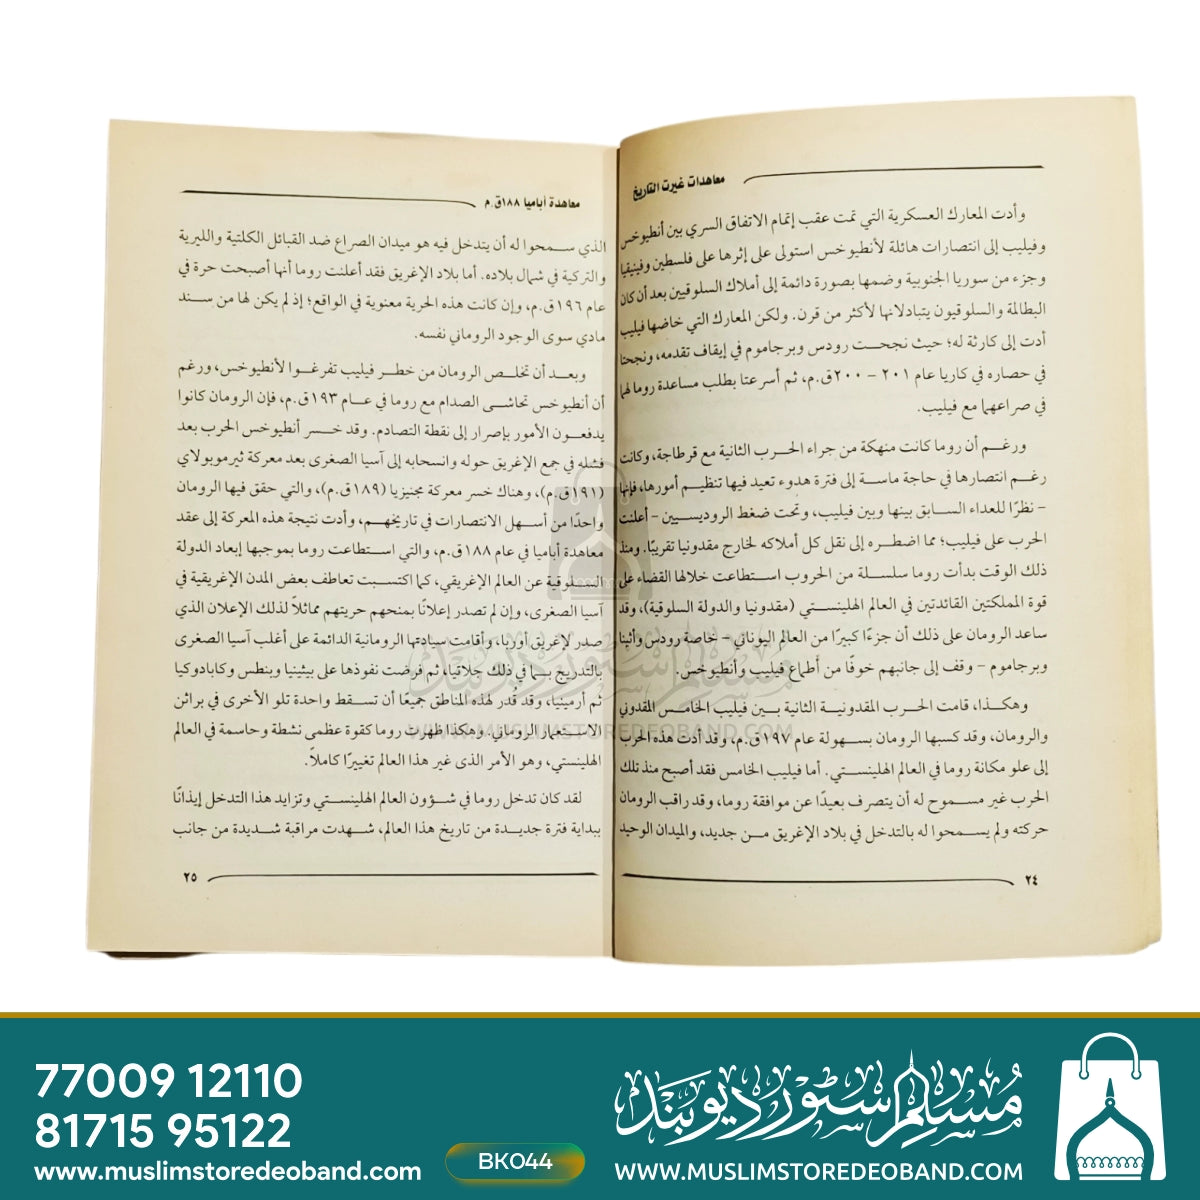 معاهدات غيرت التاريخ
وأدت المعارك العسكرية التي تمت عقب إتمام الاتفاق السري بين أنطيوخس
وفيليب إلى انتصارات هائلة لأنطيوخس استولى على إثرها على فلسطين وفينيقيا
وجزء من سوريا الجنوبية وضمها بصورة دائمة إلى أملاك السلوقيين بعد أن كان
البطالمة والسلوقيون يتبادلانها لأكثر من قرن. ولكن المعارك التي خاضها فيليب
أدت إلى كارثة له؛ حيث نجحت رودس وبرجاموم في إيقاف تقدمه، ونجحتا
في حصاره في كاريا عام ٢٠١ – ٢٠٠ق.م، ثم أسرعتا بطلب مساعدة روما لهما
في صراعهما مع فيليب.
ورغم أن روما كانت منهكة من جراء الحرب الثانية مع قرطاجة، وكانت
رغم انتصارها في حاجة ماسة إلى فترة هدوء تعيد فيها تنظيم أمورها، فإنها
– نظرًا للعداء السابق بينها وبين فيليب، وتحت ضغط الروديسيين – أعلنت
الحرب على فيليب؛ مما اضطره إلى نقل كل أملاكه لخارج مقدونيا تقريبًا. ومنذ
ذلك الوقت بدأت روما سلسلة من الحروب استطاعت خلالها القضاء على
قوة المملكتين القائدتين في العالم الهلينستي (مقدونيا والدولة السلوقية)، وقد
ساعد الرومان على ذلك أن جزءًا كبيرًا من العالم اليوناني – خاصة رودس وأثينا
وبرجاموم – وقف إلى جانبهم خوفًا من أطماع فيليب وأنطيوخس.
وهكذا، قامت الحرب المقدونية الثانية بين فيليب الخامس المقدوني
والرومان، وقد كسبها الرومان بسهولة عام ١٩٧ق.م، وقد أدت هذه الحرب
إلى علو مكانة روما في العالم الهلينستي. أما فيليب الخامس فقد أصبح منذ تلك
الحرب غير مسموح له أن يتصرف بعيدًا عن موافقة روما، وقد راقب الرومان
حركته ولم يسمحوا له بالتدخل في بلاد الإغريق من جديد، والميدان الوحيد
٢٤
معاهدة أباميا ١٨٨ق.م
الذي سمحوا له أن يتدخل فيه هو ميدان الصراع ضد القبائل الكلتية والليرية
والتركية في شمال بلاده. أما بلاد الإغريق فقد أعلنت روما أنها أصبحت حرة في
عام ١٩٦ق.م، وإن كانت هذه الحرية معنوية في الواقع؛ إذ لم يكن لها من سند
مادي سوى الوجود الروماني نفسه.
وبعد أن تخلص الرومان من خطر فيليب تفرغوا لأنطيوخس، ورغم
أن أنطيوخس تحاشى الصدام مع روما في عام ١٩٣ق.م، فإن الرومان كانوا
يدفعون الأمور بإصرار إلى نقطة التصادم. وقد خسر أنطيوخس الحرب بعد
فشله في جمع الإغريق حوله وانسحابه إلى آسيا الصغرى بعد معركة ثيرموبولاي
(١٩١ق.م)، وهناك خسر معركة مجنيزيا (١٨٩ق.م)، والتي حقق فيها الرومان
واحدًا من أسهل الانتصارات في تاريخهم، وأدت نتيجة هذه المعركة إلى عقد
معاهدة أباميا في عام ١٨٨ق.م، والتي استطاعت روما بموجبها إبعاد الدولة
السلوقية عن العالم الإغريقي، كما اكتسبت تعاطف بعض المدن الإغريقية في
آسيا الصغرى، وإن لم تصدر إعلانًا بمنحهم حريتهم مماثلاً لذلك الإعلان الذي
صدر لإغريق أوربا، وأقامت سيادتها الرومانية الدائمة على أغلب آسيا الصغرى
بالتدريج بما في ذلك جلاقيا، ثم فرضت نفوذها على بيثينيا وبنطس وكابادوكيا
ثم أرمينيا، وقد قُدر لهذه المناطق جميعًا أن تسقط واحدة تلو الأخرى في براثن
الاستعمار الروماني. وهكذا ظهرت روما كقوة عظمى نشطة وحاسمة في العالم
الهلينستي، وهو الأمر الذى غير هذا العالم تغييرًا كاملاً.
لقد كان تدخل روما في شؤون العالم الهلينستي وتزايد هذا التدخل إيذانًا
ببداية فترة جديدة من تاريخ هذا العالم، شهدت مراقبة شديدة من جانب
٢٥
مسلم سٹور دیوبند
WWW.MUSLIMSTOREDEOBAND.COM
77009 12110
81715 95122
www.muslimstoredeoband.com
BK044
مسلم سٹور دیوبند
WWW.MUSLIMSTOREDEOBAND.COM